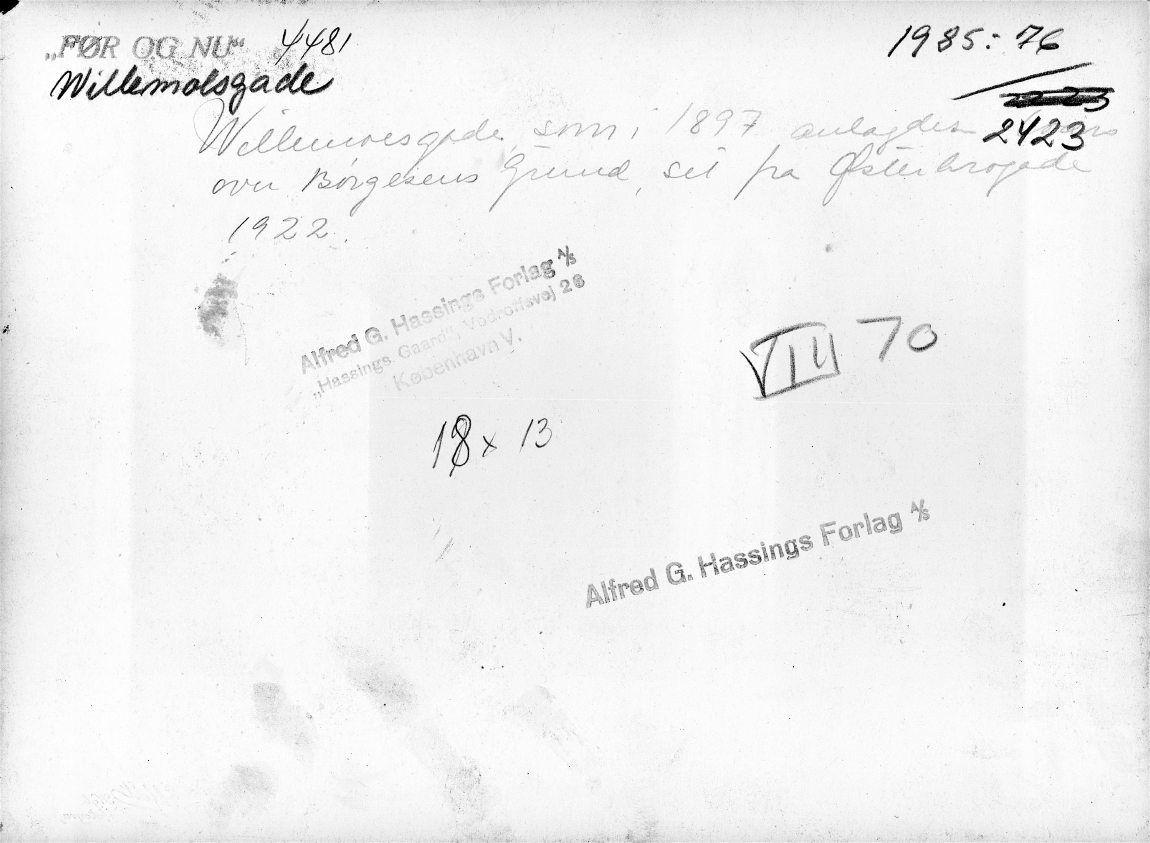 „FØR OG NU“ 4481
Willemoesgade
1985: 76
2423
Willemoesgade, som i 1897 anlagdes
over Børgesens Grund, set fra Østerbrogade
1922.
Alfred G. Hassings Forlag A/S
„Hassings Gaard“, Vodroffsvej 26
København V.
VIII 70
18 x 13
Alfred G. Hassings Forlag A/S